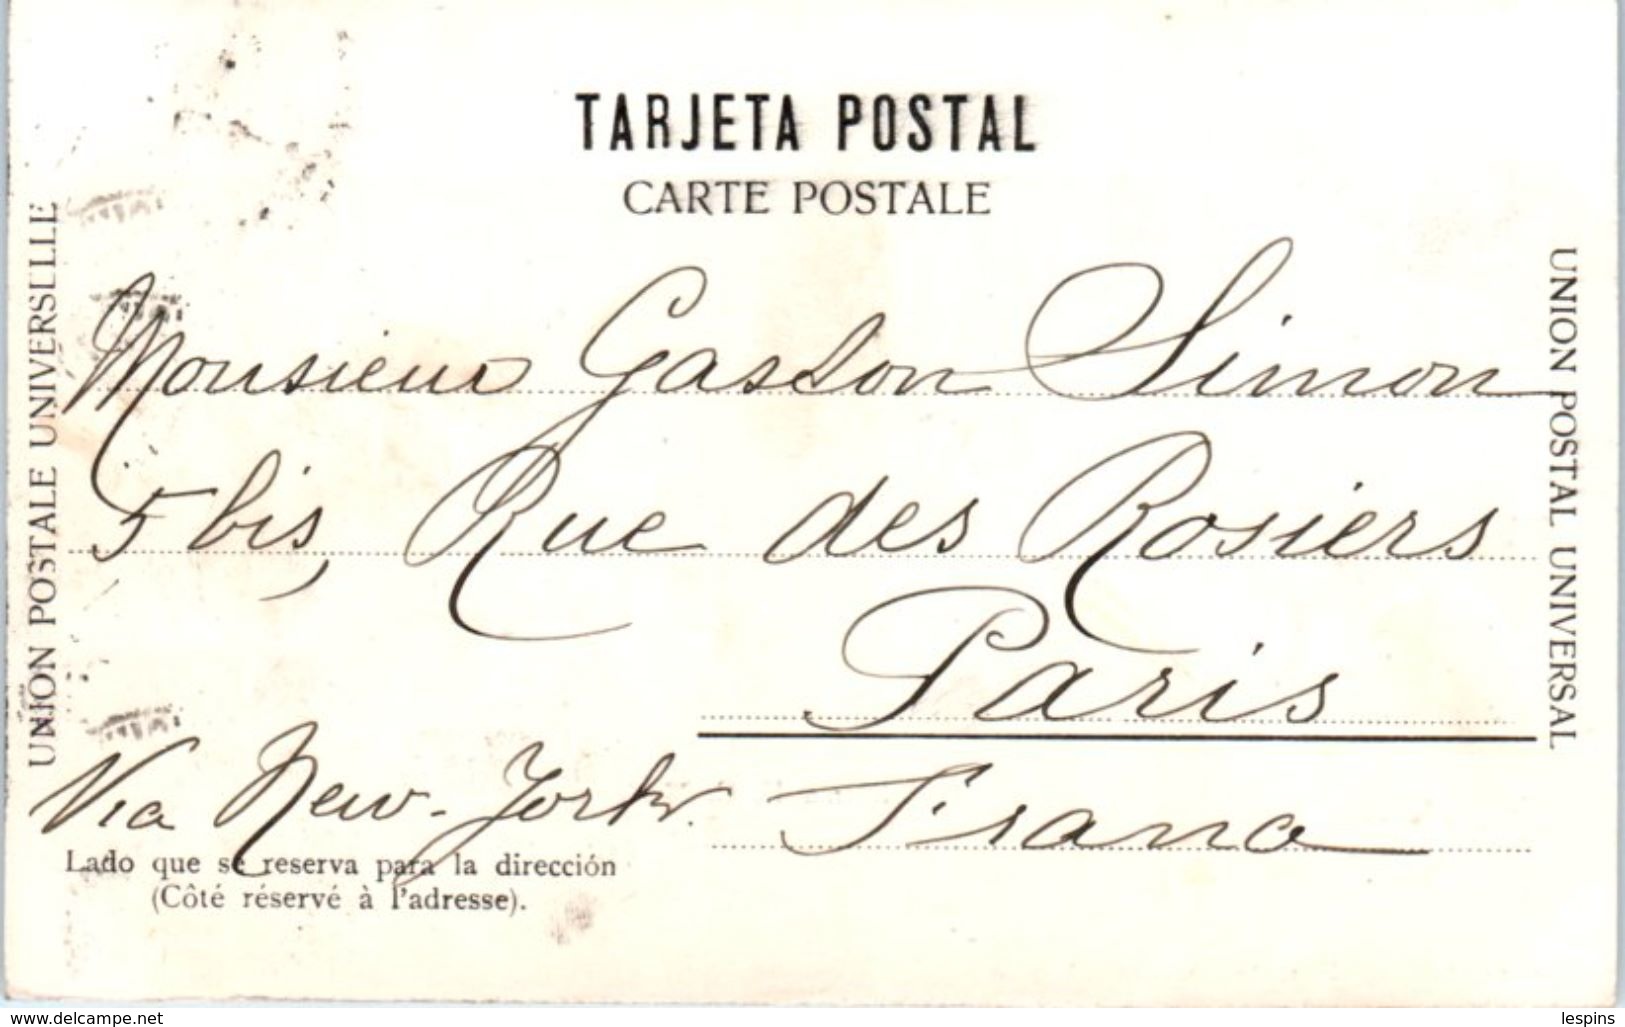 TARJETA POSTAL
CARTE POSTALE
UNION POSTALE UNIVERSELLE
UNION POSTAL UNIVERSAL
Monsieur Gaston Simon
5 bis, Rue des Rosiers
Paris
Via New-York.
France
Lado que se reserva para la dirección
(Côté réservé à l'adresse).
www.delcampe.net
lespins